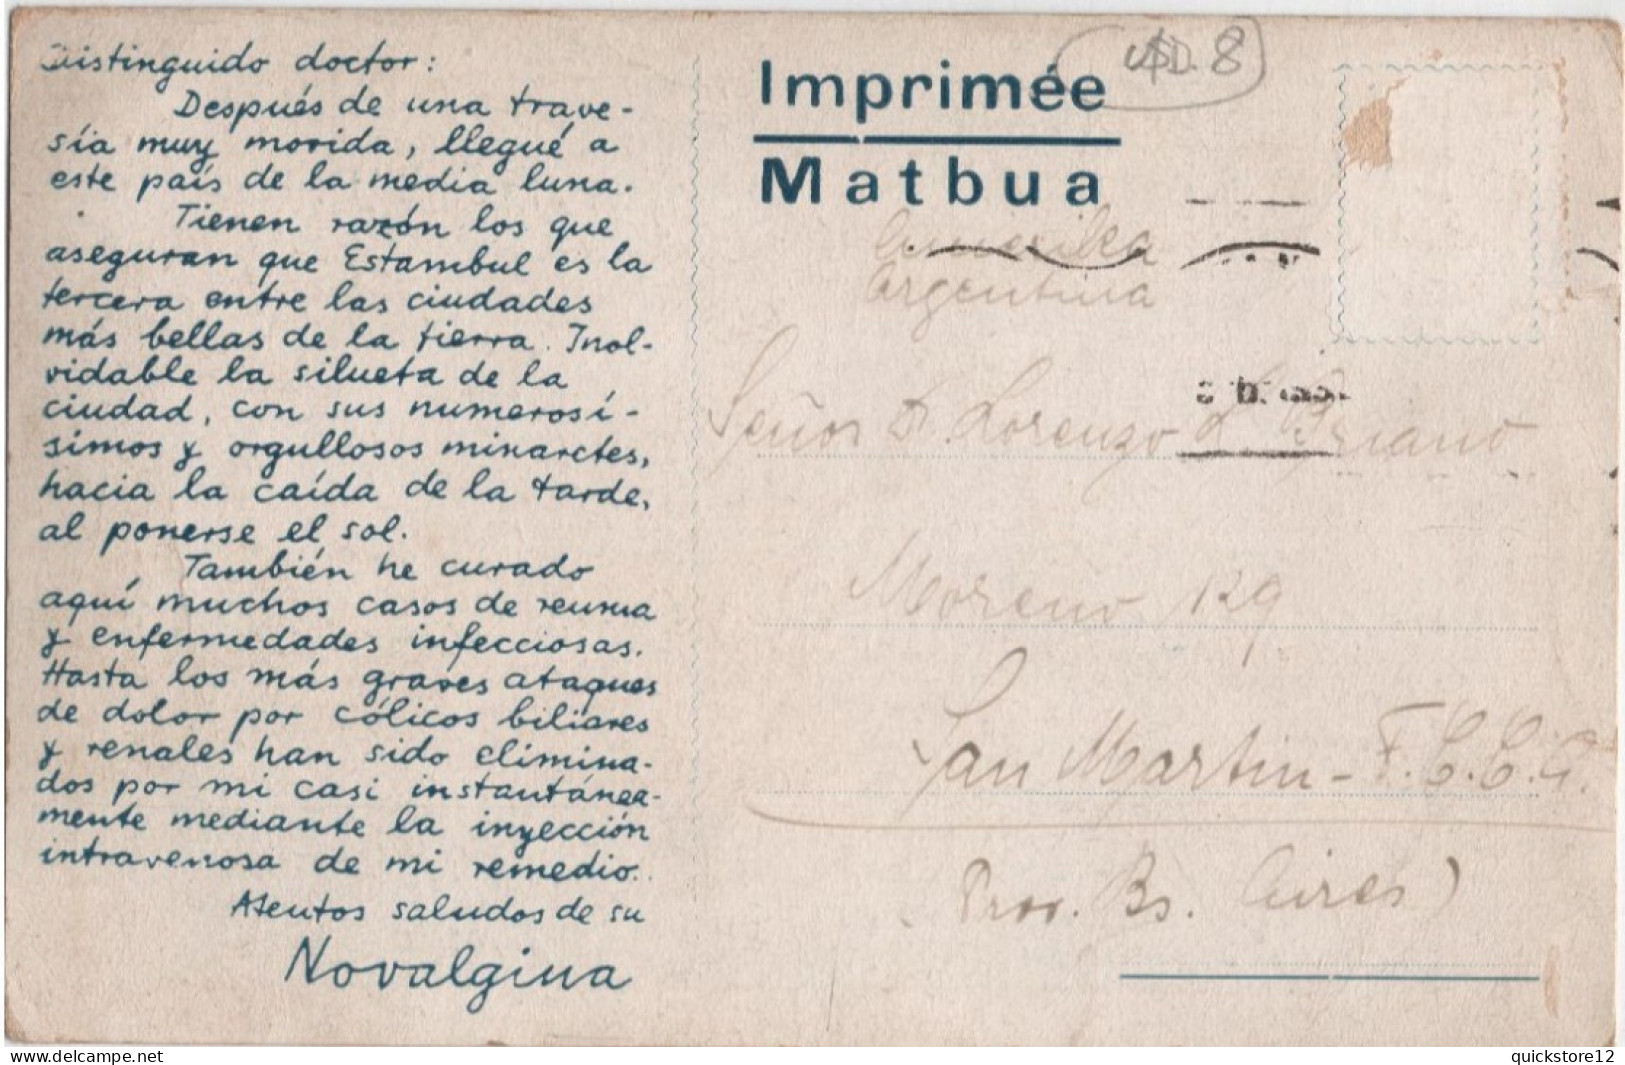 Distinguido doctor:
Después de una trave-
sía muy movida, llegué a
este país de la media luna.
Tienen razón los que
aseguran que Estambul es la
tercera entre las ciudades
más bellas de la tierra. Inol-
vidable la silueta de la
ciudad, con sus numerosí-
simos y orgullosos minaretes,
hacia la caída de la tarde,
al ponerse el sol.
También he curado
aquí muchos casos de reuma
y enfermedades infecciosas.
Hasta los más graves ataques
de dolor por cólicos biliares
y renales han sido elimina-
dos por mi casi instantánea-
mente mediante la inyección
intravenosa de mi remedio.
Atentos saludos de su
Novalgina
USD. 8
Imprimée
Matbua
Argentina
Señor D. Lorenzo
Moreno 129
San Martin - F.C.C.A.
Prov. Bs. Aires)
delcampe.net
quickstore12